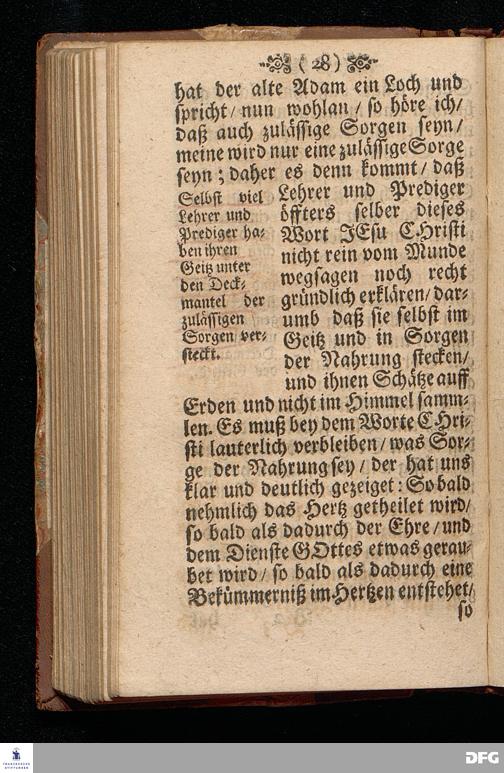 ( 28 )
hat der alte Adam ein Loch und
spricht/ nun wohlan/ so höre ich/
daß auch zulässige Sorgen seyn/
meine wird nur eine zulässige Sorge
seyn; daher es denn kommt/ daß
Lehrer und Prediger
öffters selber dieses
Wort JEsu CHristi
nicht rein vom Munde
wegsagen noch recht
gründlich erklären/ dar-
umb daß sie selbst im
Geitz und in Sorgen
der Nahrung stecken/
und ihnen Schätze auff
Selbst viel
Lehrer und
Prediger ha-
ben ihren
Geitz unter
den Deck-
mantel der
zulässigen
Sorgen ver-
steckt.
Erden und nicht im Himmel samm-
len. Es muß bey dem Worte CHri-
sti lauterlich verbleiben/ was Sor-
ge der Nahrung sey/ der hat uns
klar und deutlich gezeiget: So bald
nehmlich das Hertz getheilet wird/
so bald als dadurch der Ehre/ und
dem Dienste GOttes etwas gerau-
bet wird/ so bald als dadurch eine
Bekümmerniß im Hertzen entstehet/
so
FRANCKESCHE
STIFTUNGEN
DFG